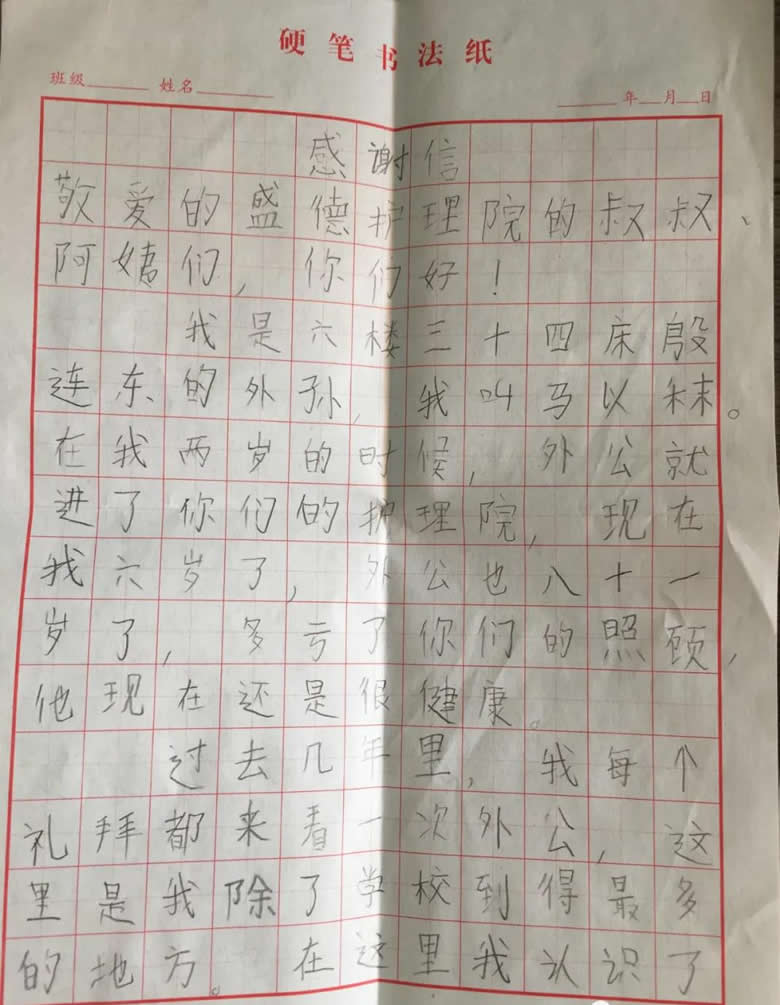 硬笔书法纸
班级 姓名 年 月 日
感谢信
敬爱的盛德护理院的叔叔、
阿姨们，你们好！
我是六楼三十四床殷
连东的外孙，我叫马以秣。
在我两岁的时候，外公就
进了你们的护理院，现在
我六岁了，外公也八十一
岁了，多亏了你们的照顾，
他现在还是很健康。
过去几年里，我每个
礼拜都来看一次外公，这
里是我除了学校到得最多
的地方。在这里我认识了